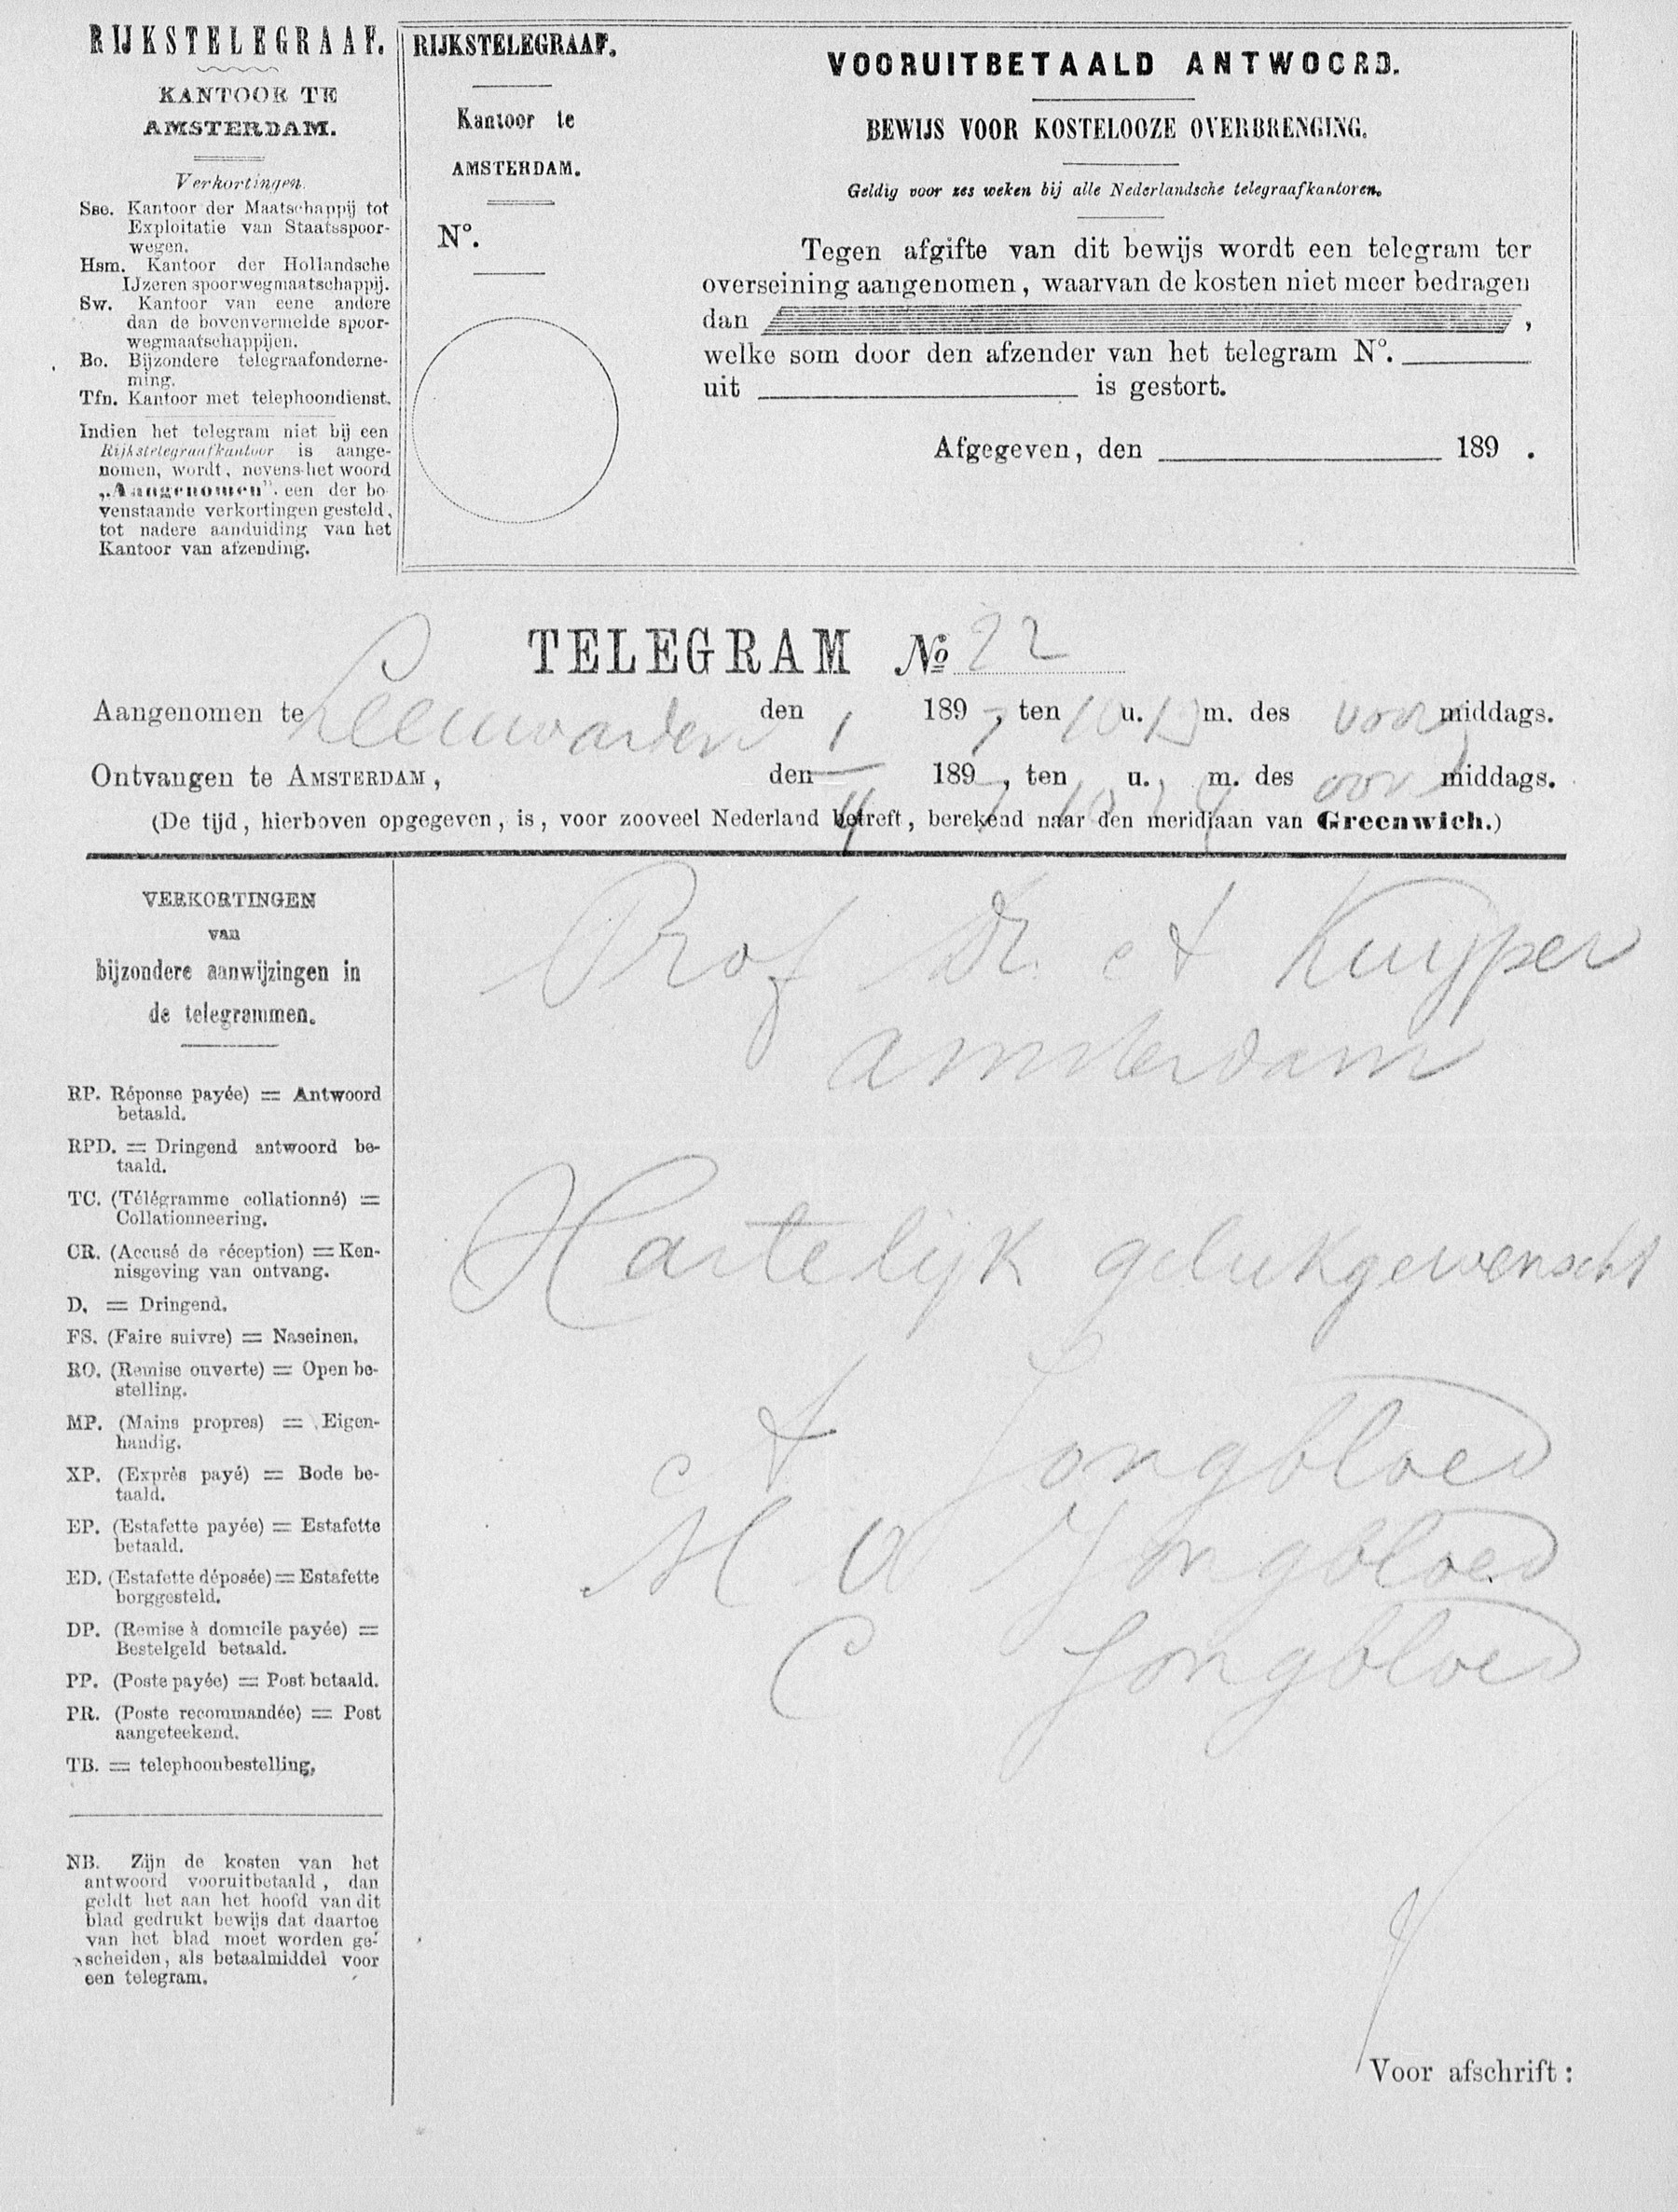 RIJKSTELEGRAAF.
KANTOOR TE
AMSTERDAM.
Verkortingen.
Sse. Kantoor der Maatschappij tot
Exploitatie van Staatsspoor-
wegen.
Hsm. Kantoor der Hollandsche
IJzeren spoorwegmaatschappij.
Sw. Kantoor van eene andere
dan de bovenvermelde spoor-
wegmaatschappijen.
Bo. Bijzondere telegraafonderne-
ming.
Tfn. Kantoor met telephoondienst.
Indien het telegram niet bij een
Rijkstelegraafkantoor is aange-
nomen, wordt, nevens het woord
„Aangenomen” een der bo-
venstaande verkortingen gesteld,
tot nadere aanduiding van het
Kantoor van afzending.
RIJKSTELEGRAAF.
Kantoor te
AMSTERDAM.
N°.
VOORUITBETAALD ANTWOORD.
BEWIJS VOOR KOSTELOOZE OVERBRENGING.
Geldig voor zes weken bij alle Nederlandsche telegraafkantoren.
Tegen afgifte van dit bewijs wordt een telegram ter
overseining aangenomen, waarvan de kosten niet meer bedragen
dan ,
welke som door den afzender van het telegram N°.
uit is gestort.
Afgegeven, den 189 .
TELEGRAM No 22
Aangenomen te Leeuwarden den 1 189 7, ten 10 u. m. des voormiddags.
Ontvangen te AMSTERDAM, den 189 , ten u. m. des voormiddags.
(De tijd, hierboven opgegeven, is, voor zooveel Nederland betreft, berekend naar den meridiaan van Greenwich.)
VERKORTINGEN
van
bijzondere aanwijzingen in
de telegrammen.
RP. Réponse payée) = Antwoord
betaald.
RPD. = Dringend antwoord be-
taald.
TC. (Télégramme collationné) =
Collationneering.
CR. (Accusé de réception) = Ken-
nisgeving van ontvang.
D. = Dringend.
FS. (Faire suivre) = Naseinen.
RO. (Remise ouverte) = Open be-
stelling.
MP. (Mains propres) = Eigen-
handig.
XP. (Exprès payé) = Bode be-
taald.
EP. (Estafette payée) = Estafette
betaald.
ED. (Estafette déposée) = Estafette
borggesteld.
DP. (Remise à domicile payée) =
Bestelgeld betaald.
PP. (Poste payée) = Post betaald.
PR. (Poste recommandée) = Post
aangeteekend.
TB. = telephoonbestelling.
NB. Zijn de kosten van het
antwoord vooruitbetaald, dan
geldt het aan het hoofd van dit
blad gedrukt bewijs dat daartoe
van het blad moet worden ge-
scheiden, als betaalmiddel voor
een telegram.
Prof Dr. A Kuyper
Amsterdam
Hartelijk gelukgewenscht
A Jongbloed
H A Jongbloed
C Jongbloed
Voor afschrift: